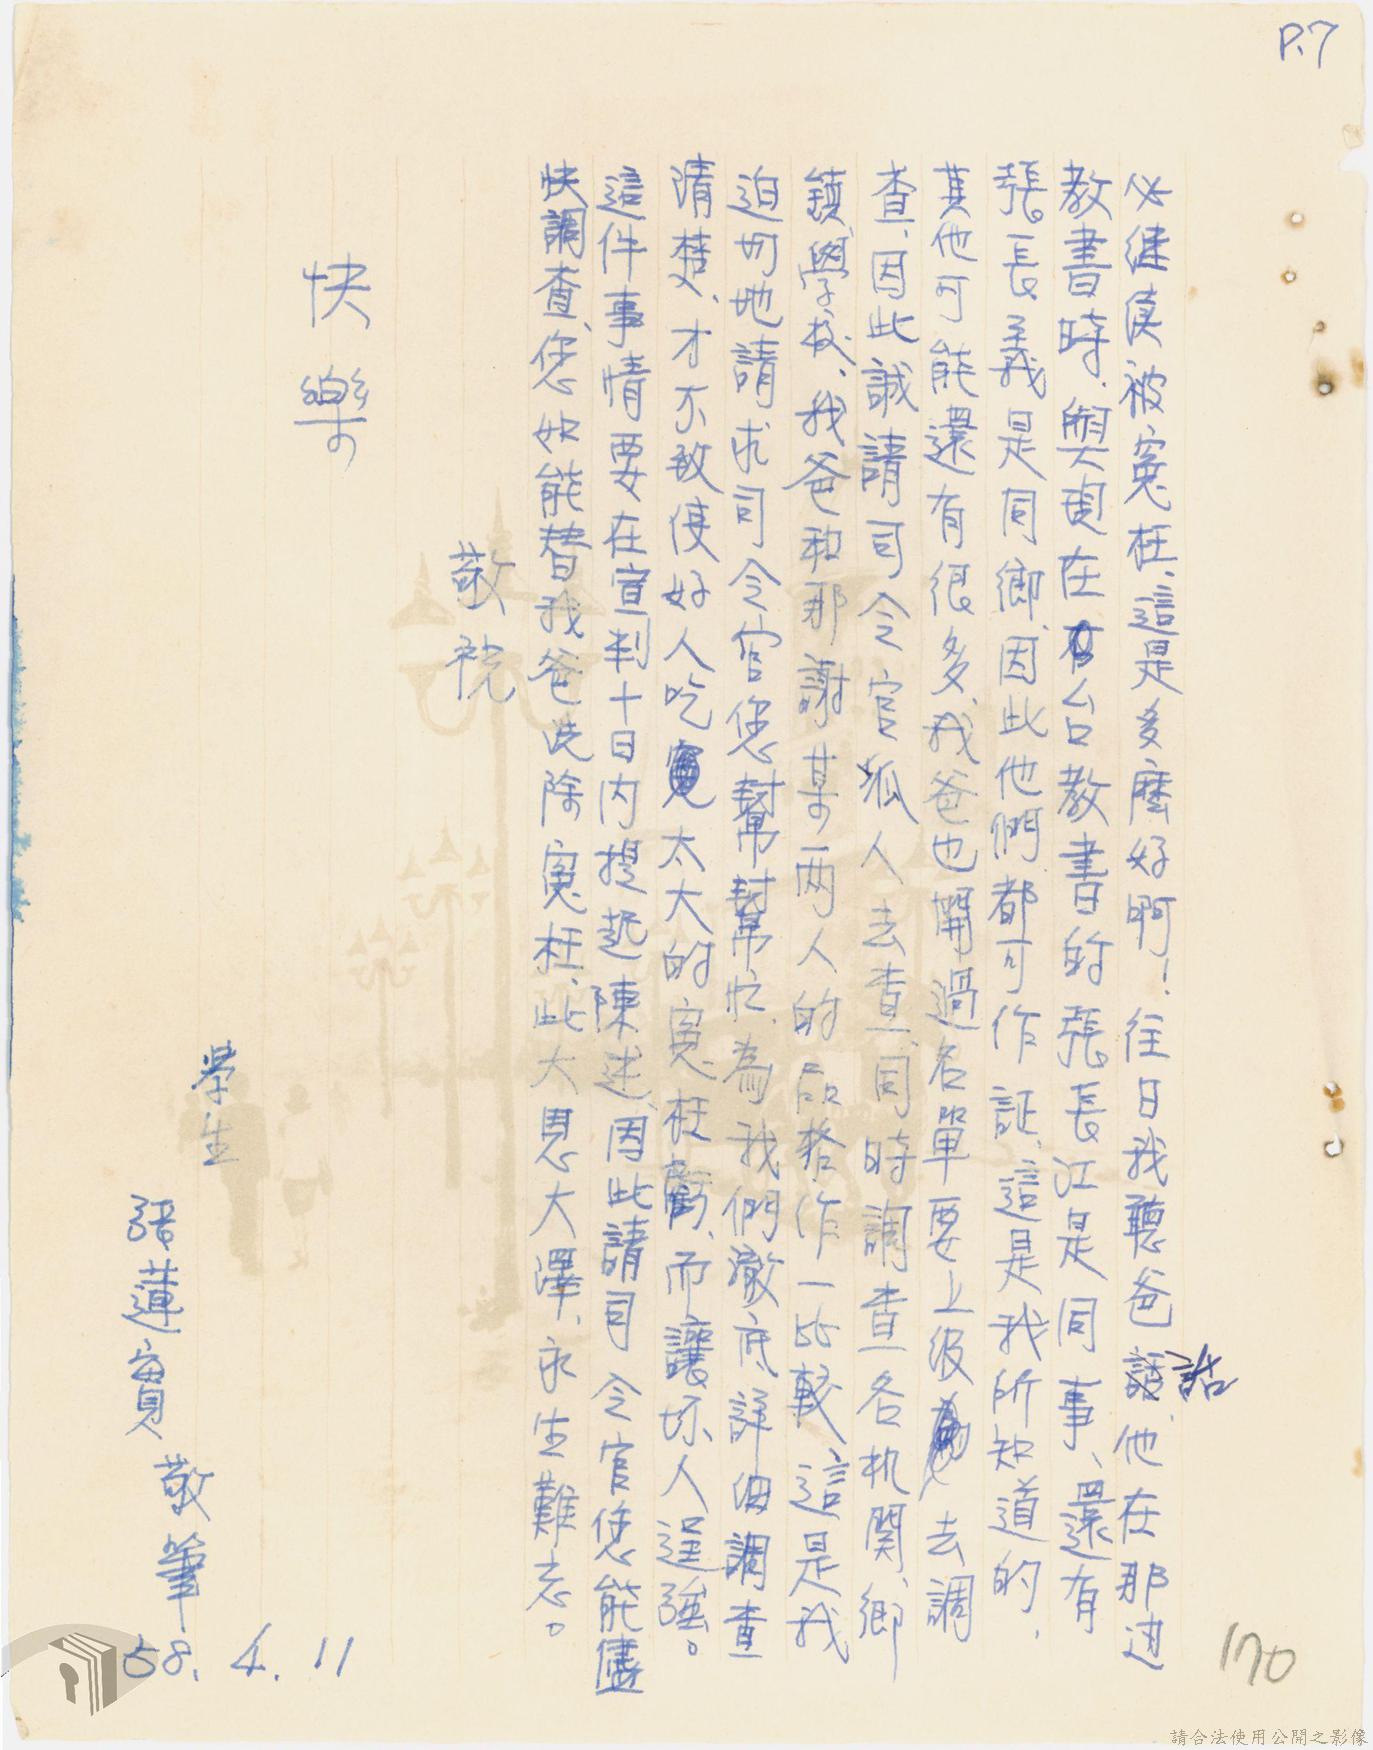 P.7
必继续被冤枉、這是多麼好啊！往日我聽爸話、他在那边
教書時、與現在台教書的張長江是同事、還有
張長義是同鄉、因此他們都可作証、這是我所知道的、
其他可能還有很多、我爸也開過名單要上级去調
查、因此誠請司令官派人去查、同時調查各机関、鄉
鎮、學校、我爸和那謝某两人的品格作一比較、這是我
迫切地請求司令官您幫幫忙、為我們澈底、詳细調查
清楚、才不致使好人吃太大的冤枉虧、而讓坏人逞强。
這件事情要在宣判十日内提起陳述、因此請司令官您能儘
快調查、您如能替我爸洗除冤枉、此大恩大澤、永生難忘。
敬祝
快樂
學生
張蓮寶 敬筆
58. 4. 11
170
請合法使用公開之影像